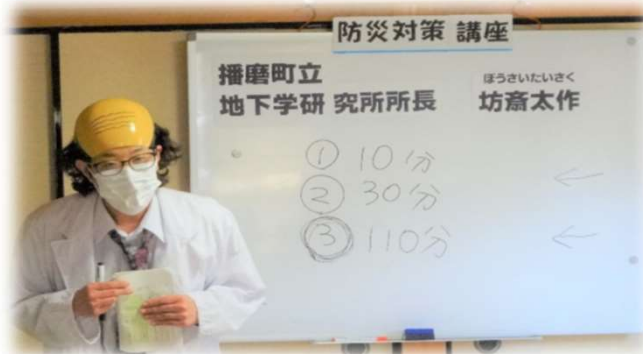 防災対策 講座
播磨町立
地下学研 究所所長
ほうさいたいさく
坊斎太作
① 10分
② 30分
③ 110分